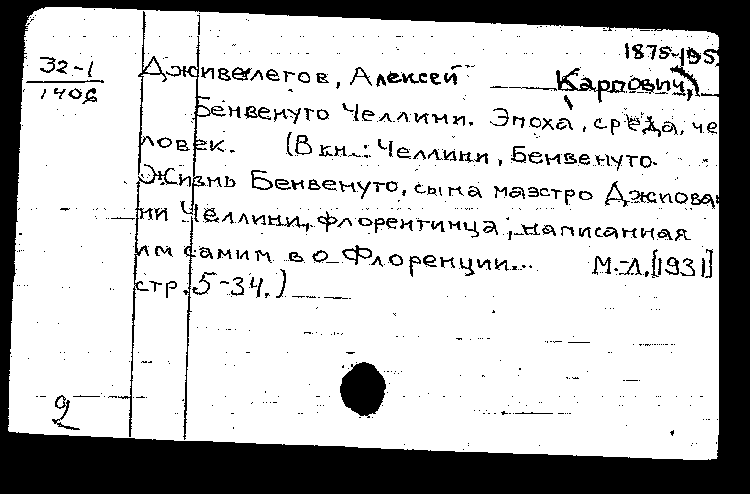 1875-195
32-1
1406
Дживелегов, Алексей Карпович,
Бенвенуто Челлини. Эпоха, среда, че
ловек. (В кн.: Челлини, Бенвенуто.
Жизнь Бенвенуто, сына маэстро Джиова
ни Челлини, флорентинца, написанная
им самим во Флоренции... М.-Л.[1931]
стр. 5-34.)
2